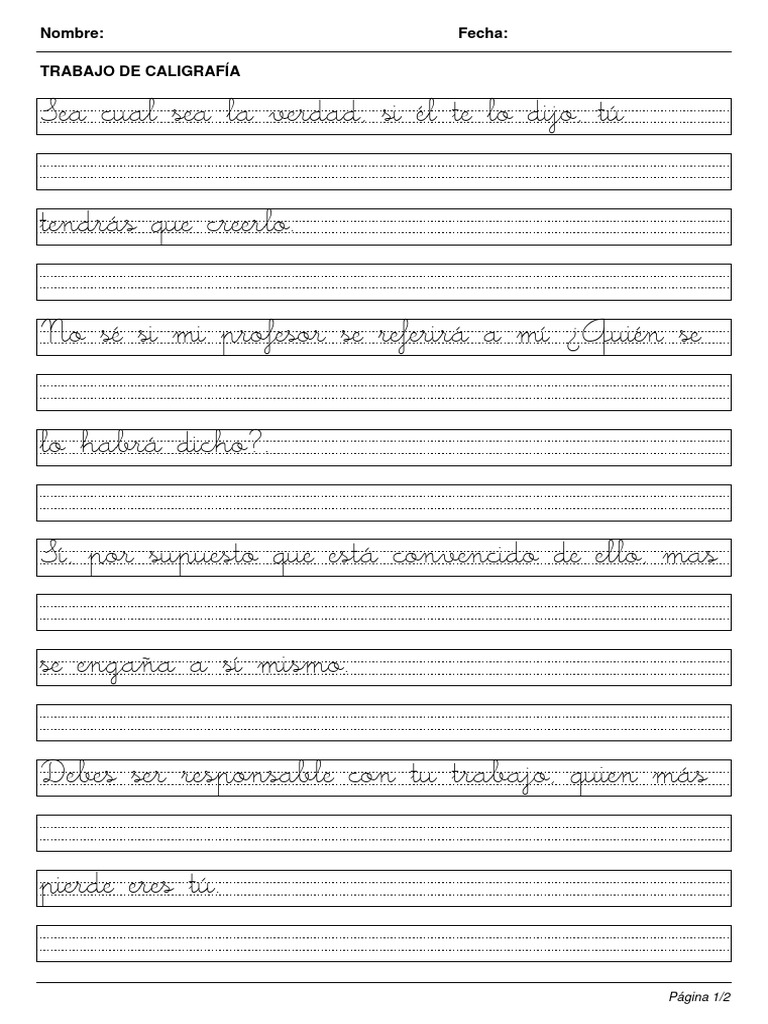 Nombre: Fecha:
TRABAJO DE CALIGRAFÍA
Sea cual sea la verdad, si él te lo dijo, tú
tendrás que creerlo.
No sé si mi profesor se referirá a mí ¿Quién se
lo habrá dicho?.
Sí, por supuesto que está convencido de ello, mas
se engaña a sí mismo.
Debes ser responsable con tu trabajo, quien más
pierde eres tú.
Página 1/2